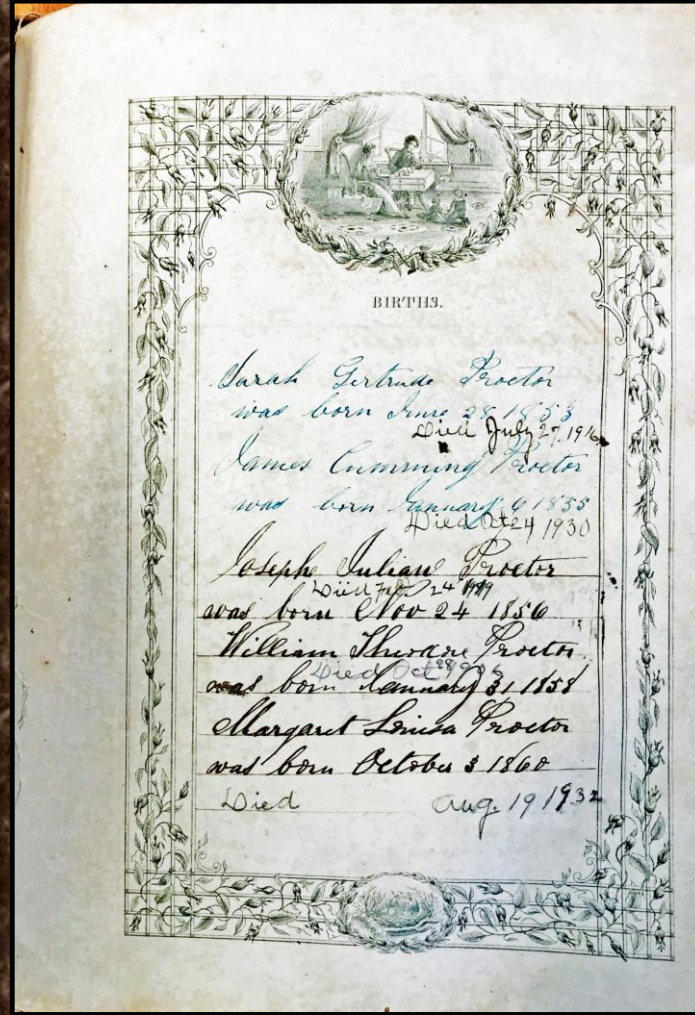 BIRTHS.
Sarah Gertrude Proctor
was born June 28 1853
Died July 27, 1916
James Cumming Proctor
was born January 6 1855
Died Oct 24 1930
Joseph Julian Proctor
Died Feb 24
was born Nov 24 1856
William Theodore Proctor
Died Oct 1906
was born January 31 1858
Margaret Louisa Proctor
was born October 3 1860
Died Aug. 19 1932